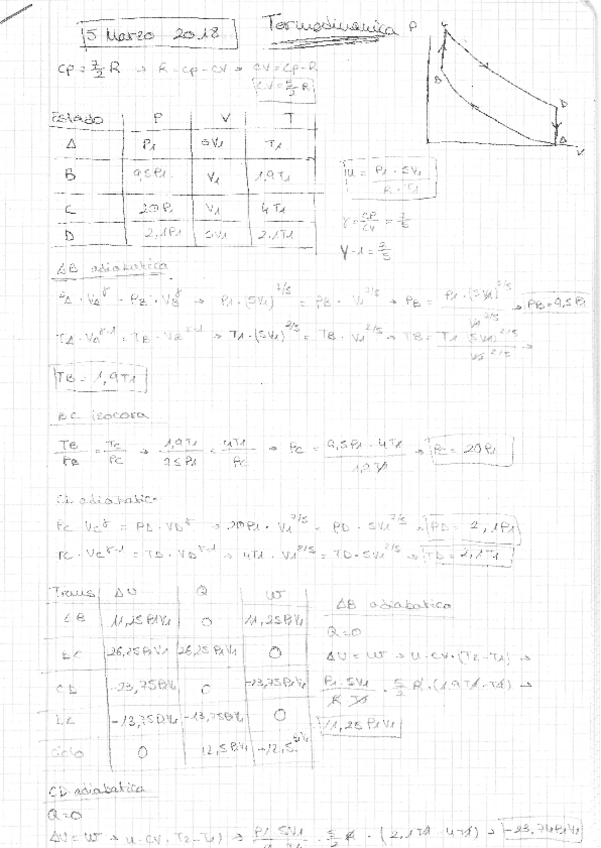 5 Marzo 2018
Termodinámica
P
Cp = 7/2 R → R = Cp - CV → CV = Cp - R
CV = 5/2 R
C
B
D
A
V
Estado P V T
A P1 5V1 T1
B 9,5P1 V1 1,9T1
C 20P1 V1 4T1
D 2,1P1 5V1 2,1T1
n = P1 · 5V1 / R · T1
γ = CP/CV = 7/5
γ-1 = 2/5
AB adiabática
PA · VA^γ = PB · VB^γ → P1 · (5V1)^7/5 = PB · V1^7/5 → PB = P1 · (5V1)^7/5 / V1^7/5 → PB = 9,5P1
TA · VA^γ-1 = TB · VB^γ-1 → T1 · (5V1)^2/5 = TB · V1^2/5 → TB = T1 (5V1)^2/5 / V1^2/5 →
TB = 1,9T1
BC isocora
TB/PB = TC/PC → 1,9T1/9,5P1 = 4T1/PC → PC = 9,5P1 · 4T1 / 1,9T1 → PC = 20P1
CD adiabatica
PC · VC^γ = PD · VD^γ → 20P1 · V1^7/5 = PD · 5V1^7/5 → PD = 2,1P1
TC · VC^γ-1 = TD · VD^γ-1 → 4T1 · V1^2/5 = TD · 5V1^2/5 → TD = 2,1T1
Trans ΔU Q W
AB 11,25P1V1 0 11,25P1V1
BC 26,25P1V1 26,25P1V1 0
CD -23,75P1V1 0 -23,75P1V1
DA -13,75P1V1 -13,75P1V1 0
Ciclo 0 12,5P1V1 -12,5P1V1
AB adiabatica
Q=0
ΔU = W → n · CV · (T2 - T1) →
P1 · 5V1 / R T1 · 5/2 R · (1,9T1 - T1) →
11,25P1V1
CD adiabatica
Q=0
ΔU = W → n · CV · T2 - T1) → P1 5V1 · 5/2 R · (2,1T1 - 4T1) → -23,74P1V1